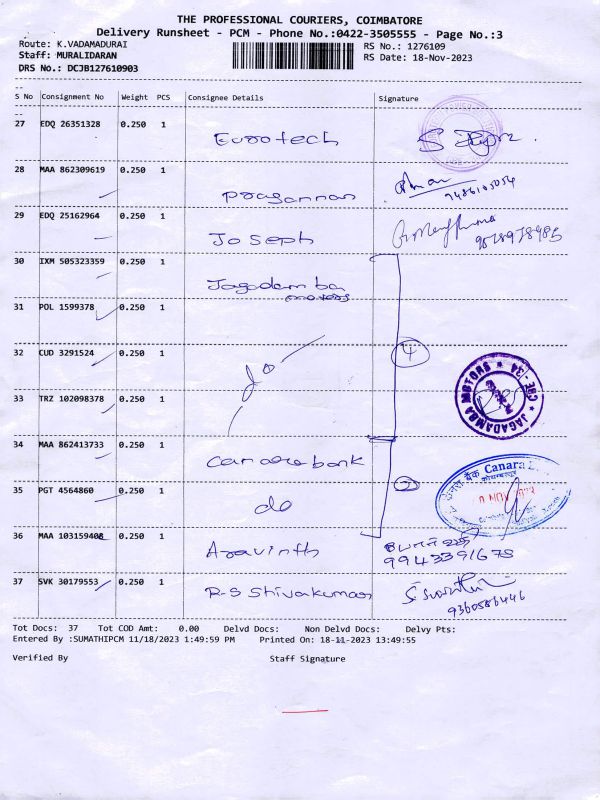 THE PROFESSIONAL COURIERS, COIMBATORE
Delivery Runsheet - PCM - Phone No.:0422-3505555 - Page No.:3
Route: K.VADAMADURAI RS No.: 1276109
Staff: MURALIDARAN RS Date: 18-Nov-2023
DRS No.: DCJB127610903
S No Consignment No Weight PCS Consignee Details Signature
27 EDQ 26351328 0.250 1 Eurotech
28 MAA 862309619 0.250 1 Prasannan
9486105054
29 EDQ 25162964 0.250 1 Joseph
30 IXM 505323359 0.250 1 Jagadamba
motors
31 POL 1599378 0.250 1
32 CUD 3291524 0.250 1 4
do
33 TRZ 102098378 0.250 1
JAGADAMBA MOTORS * CBE - 34 *
34 MAA 862413733 0.250 1 Canara bank
35 PGT 4564860 0.250 1 do 2
बैंक Canara
NOV
36 MAA 103159408 0.250 1 Aravinth
9943391678
37 SVK 30179553 0.250 1 R-S Shivakumar
9360586446
Tot Docs: 37 Tot COD Amt: 0.00 Delvd Docs: Non Delvd Docs: Delvy Pts:
Entered By :SUMATHIPCM 11/18/2023 1:49:59 PM Printed On: 18-11-2023 13:49:55
Verified By Staff Signature